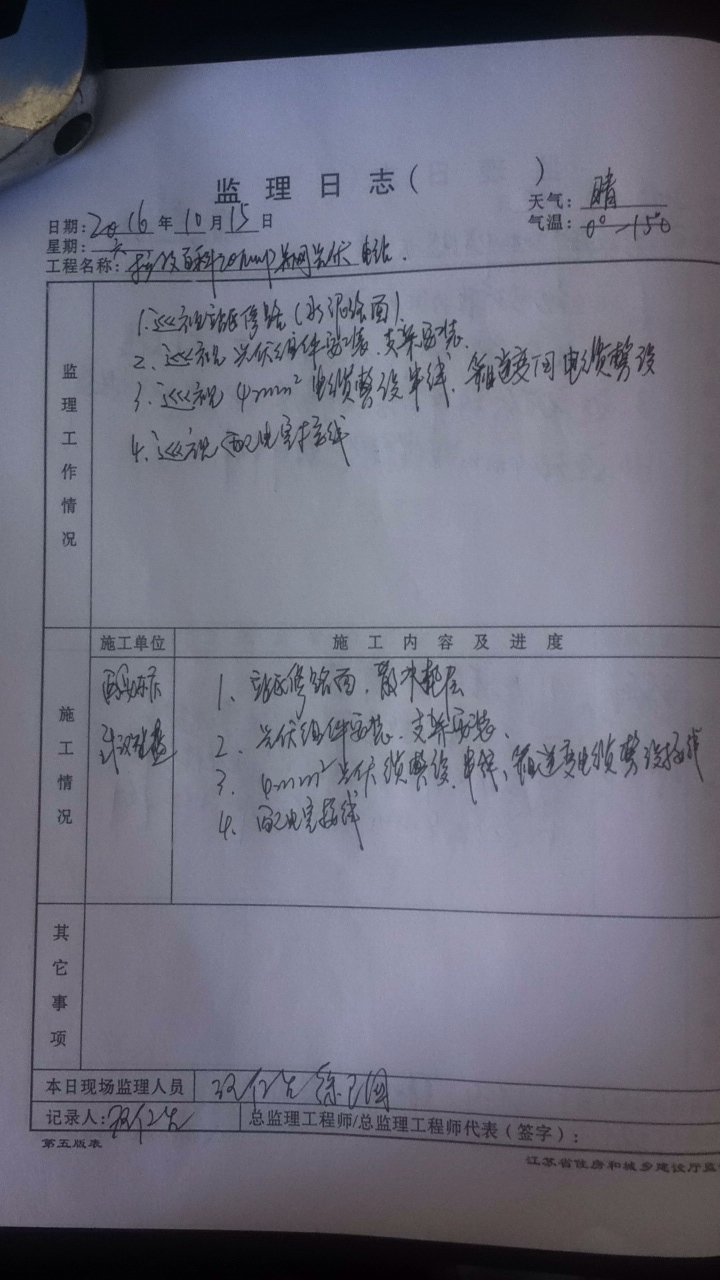 监 理 日 志 ( )
日期: 2016 年 10 月 15 日
天气: 晴
星期: 六
气温: 0°~15°
工程名称: 20MWP并网光伏电站.
监理工作情况
1. 巡视站区修路 (水泥路面).
2. 巡视光伏组件安装、支架安装.
3. 巡视 4mm² 电缆敷设串线、箱逆变间电缆敷设
4. 巡视配电室接线
施工情况
施工单位
施 工 内 容 及 进 度
1. 站区修路面,
2. 光伏组件安装、支架安装.
3. 4mm² 光伏缆敷设、串线、箱逆变电缆敷设接线
4. 配电室接线
其它事项
本日现场监理人员
记录人:
总监理工程师/总监理工程师代表(签字):
第五版表
江苏省住房和城乡建设厅监